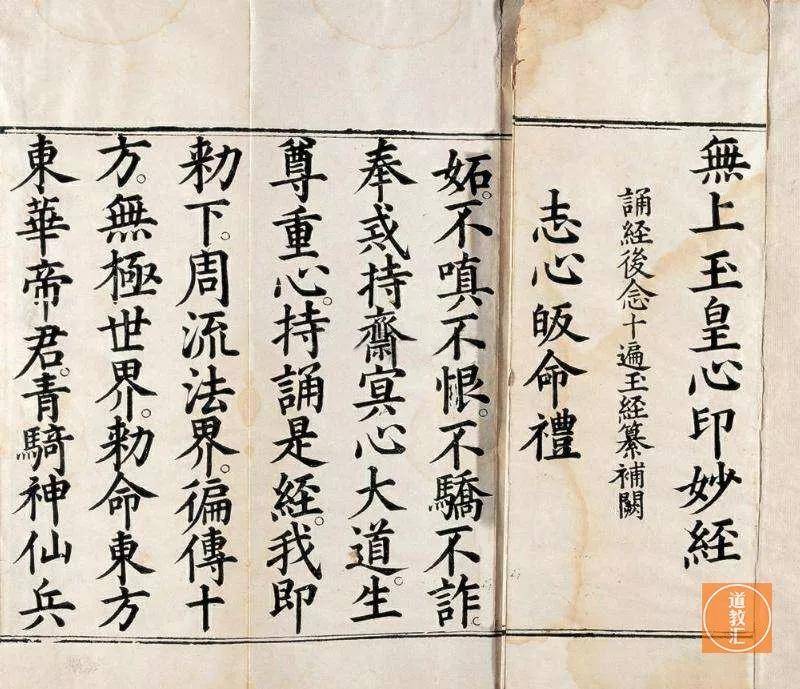 無上玉皇心印妙經
誦經後念十遍玉經纂補闕
志心皈命禮
妬。不嗔不恨。不驕不詐。
奉戒持齋冥心大道。生
尊重心。持誦是經。我即
勑下。周流法界。徧傳十
方。無極世界。勑命東方
東華帝君。青騎神仙兵
道教汇